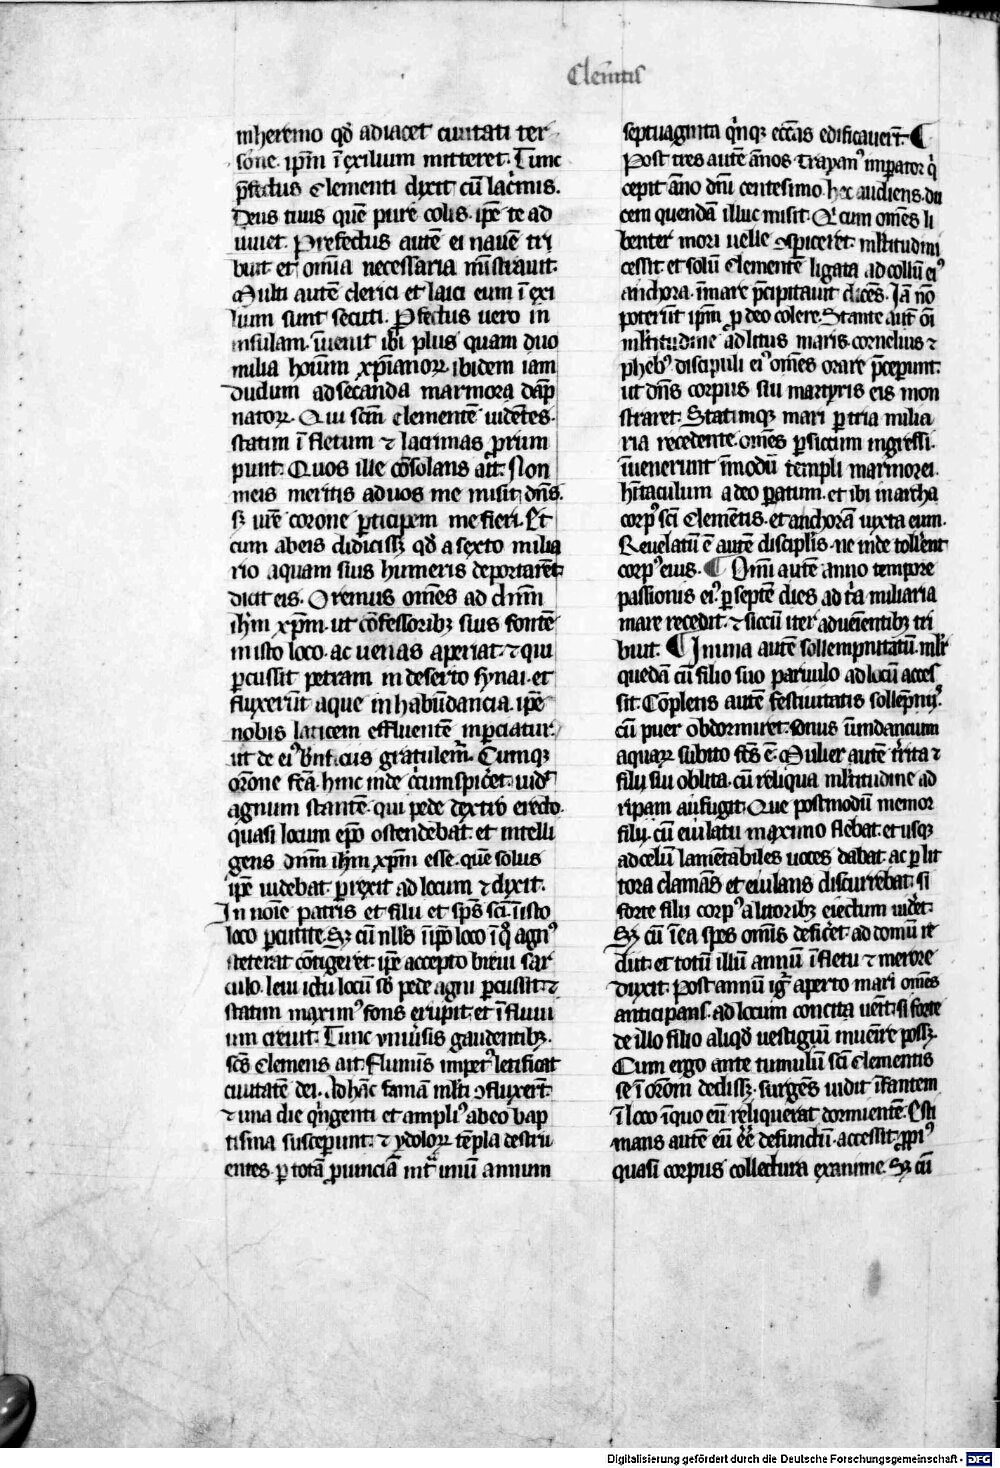 Clem̄tis
inheremo qd̄ adiacet ciuitati ter
sone. ip̄m ī exilium mitteret. Tunc
p̄fectus clementi dixit cū lac̓mis.
Deus tuus quē pure colis. ip̄e te ad
iuuet. Prefectus autē ei nauē tri
buit et om̄ia necessaria mīstrauit.
Multi autē clerici et laici eum ī exi
lium sunt secuti. P̄fectus uero in
insulam. īuenit ibi plus quam duo
milia hoīum xp̄ianoꝝ. ibidem iam
dudum ad secanda marmora dāp
natoꝝ. Qui sc̄m clementē uidētes.
statim ī fletum ⁊ lacrimas ꝓrum
punt. Quos ille cōsolans ait. Non
meis meritis ad uos me misit dn̄s.
sꝫ ur̄e corone ꝑticipem me fieri. Et
cum ab eis didicissꝫ qd̄ a sexto milia
rio aquam suis humeris deportarēt.
dicit eis. Oremus om̄es ad dn̄m
ih̄m xp̄m. ut cōfessoribꝫ suis fontē
in isto loco. ac uenas aperiat. ⁊ qui
ꝑcussit petram in deserto synai. et
fluxerūt aque in habūdancia. ip̄e
nobis laticem effluentē inꝑciatur.
ut de eiꝰ bn̄ficiis gratulem̄. Cumqꝫ
orōne fc̄a. hinc inde c̓cumspic̓et. uidꝫ
agnum stantē. qui pede dextro erecto.
quasi locum ep̄o ostendebat. et intelli
gens dn̄m ih̄m xp̄m esse. quē solus
ip̄e uidebat. ꝑrexit ad locum ⁊ dixit.
In noīe patris et filii et sp̄s sc̄i. ī isto
loco ꝑcutite. Sꝫ cū nll̓s ī ip̄o loco ī q̊ agnꝰ
steterat cōtigeret. ip̄e accepto breui sar
culo. leui ictu locū sb̓ pede agni ꝑcussit. ⁊
statim maximꝰ fons erupit. et ī fluui
um creuit. Tunc vniu̓sis gaudentibꝫ.
sc̄s clemens ait. Flumīs impetꝰ letificat
ciuitatē dei. Ad hāc famā ml̓ti ꝯfluxer̄t.
⁊ una die qn̓genti et ampliꝰ ab eo bap
tisma susceperunt. ⁊ ydoloꝝ tēpla destru
entes. ꝑ totā ꝓuinciā infra unū annum
septuaginta qn̓qꝫ ecc̄as edificauer̄t. ¶
Post tres autē ānos Trayanꝰ imꝑator q̓
cepit āno dn̄i centesimo. hec audiens. du
cem quendā illuc misit. Q̓ cum om̄es li
benter mori uelle ꝯspiceret. ml̓titudini
cessit. et solū Clementē ligata ad collū eiꝰ
anchora. ī mare p̄cipitauit dicēs. Iā nō
poterūt ipm̄ ꝓ deo colere. Stante aut̄ oī
ml̓titudine ad litus maris. cornelius ⁊
phebꝰ discipuli eiꝰ om̄es orare p̄ceperunt.
ut dn̄s corpus sui martyris eis mon
straret. Statimqꝫ mari ꝑ tria milia
ria recedente. om̄es ꝑ siccum ingressi.
īuenerunt ī modū templi marmorei.
hītaculum a deo ꝑatum. et ibi in archa
corpꝰ sc̄i Clemētis. et anchorā iuxta eum.
Reuelatū ē autē discipl̓is. ne inde toll̓ent
corpꝰ eius. ¶ Om̄i autē anno tempore
passionis eiꝰ. ꝑ septē dies ad t̓a miliaria
mare recedit. ⁊ siccū iter aduenientibꝫ tri
buit. ¶ In una autē sollempnitatū. ml̓r
quedā cū filio suo paruulo ad locū acces
sit. Cōpletis autē festiuitatis sollēpniis.
cū puer obdormiret. sonus īundancium
aquaꝝ subito fc̄s ē. Mulier autē t̓rita ⁊
filii sui oblita. cū reliqua ml̓titudine ad
ripam aufugit. Que postmodū memor
filii. cū eiulatu maximo flebat. et usqꝫ
ad celū lamētabiles uoces dabat. ac ꝑ lit
tora clamās et eiulans discurrebat. si
forte filii corpꝰ a litoribꝫ eiectum uid̓et.
Sꝫ cū ī ea spes om̄is defic̓et. ad domū re
diit. et totū illū annū ī fletu ⁊ merore
duxit. Post annū ig̓ aperto mari om̄es
anticipans. ad locum concita uēit. si forte
de illo filio aliqd̓ uestigiū inuenire possꝫ.
Cum ergo ante tumulū sc̄i Clementis
se ī orōem dedissꝫ. surgēs uidit īfantem
ī loco in quo eū reliquerat dormientē. Esti
mans autē eū eē defunctū. accessit ꝓpiꝰ
quasi corpus collectura exanime. Sꝫ cū
Digitalisierung gefördert durch die Deutsche Forschungsgemeinschaft - DFG